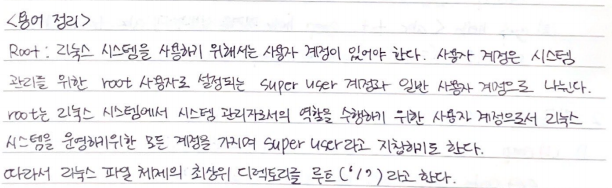 <용어 정리>
Root : 리눅스 시스템을 사용하기 위해서는 사용자 계정이 있어야 한다. 사용자 계정은 시스템
관리를 위한 root 사용자로 설정되는 super user 계정과 일반 사용자 계정으로 나눈다.
root는 리눅스 시스템에서 시스템 관리자로서의 역할을 수행하기 위한 사용자 계정으로서 리눅스
시스템을 운영하기위한 모든 계정을 가지며 super user라고 지칭하기도 한다.
따라서 리눅스 파일 체제의 최상위 디렉토리를 루트('/')라고 한다.